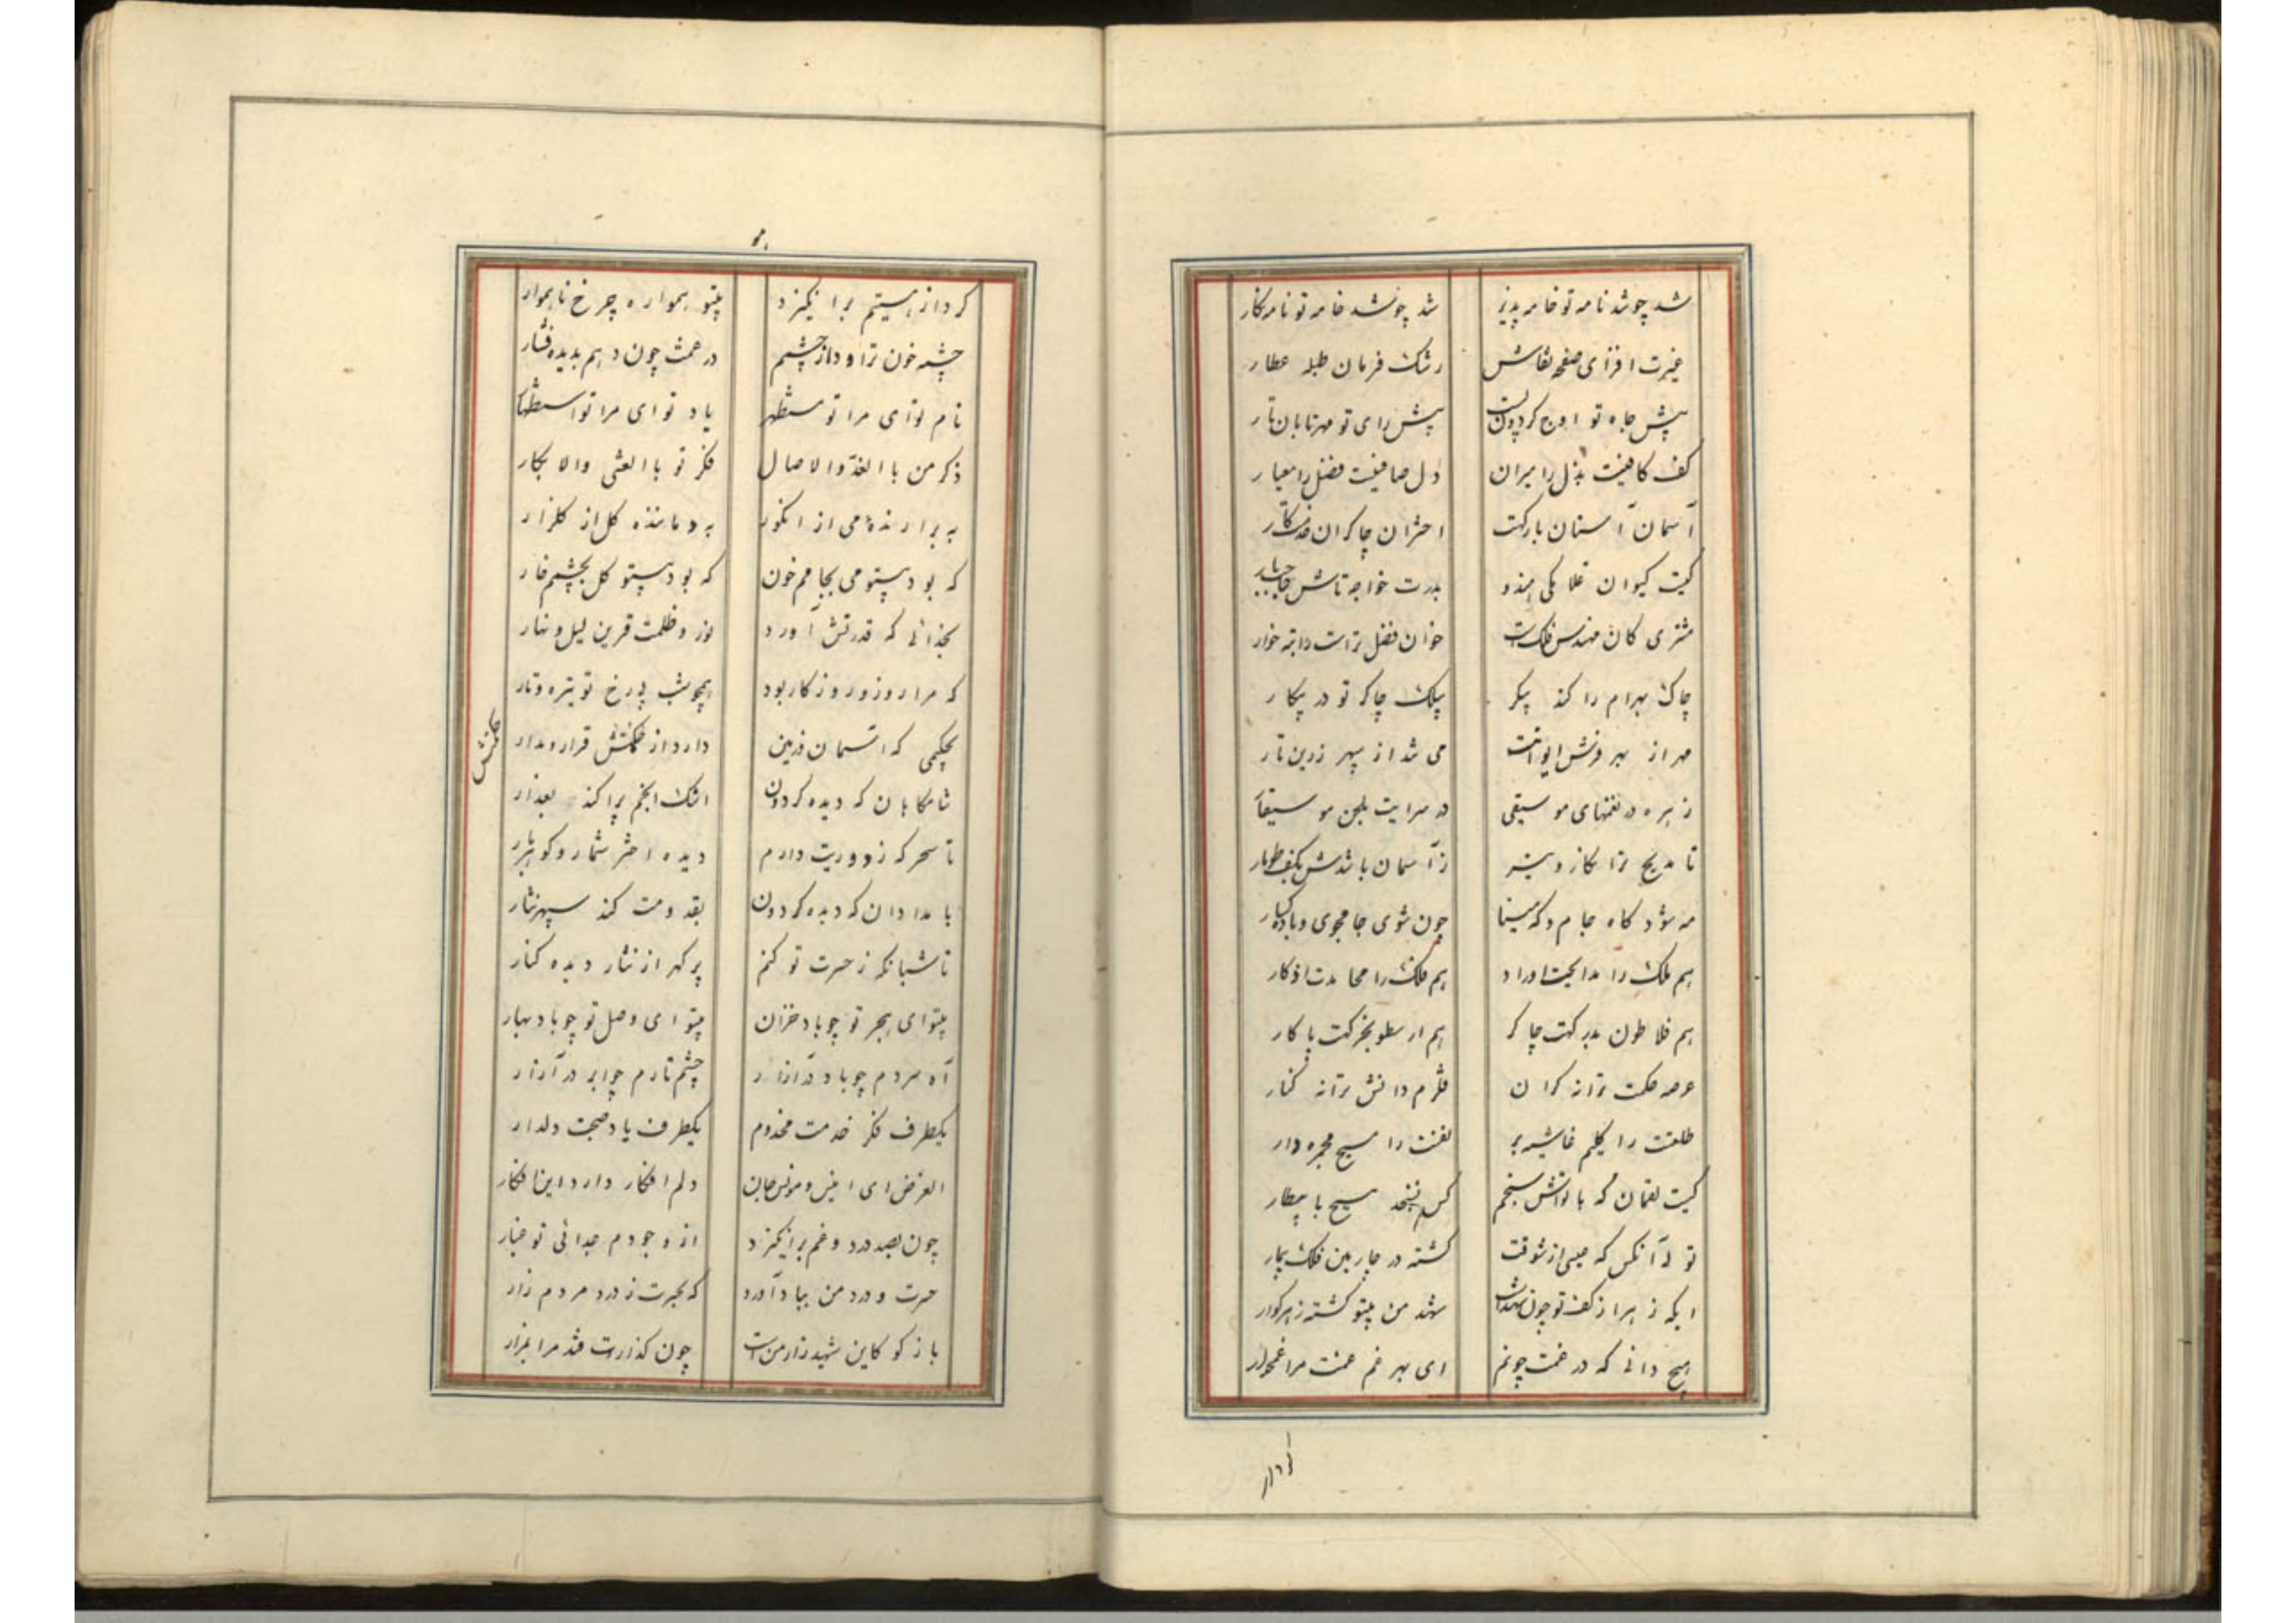 شد چو شد نامه تو خامه پذیر شد چو شد خامه تو نامه نکار
غیرت افزای صفحه نقاش رشک فرمان طبله عطار
پیش جاه تو اوج کردون پست پیش رای تو مهر تابان تار
کف کافیت بذل را میزان دل صافیت فضل را معیار
آسمان آستان بارکت اختران چاکران خدمتکار
کیست کیوان غلامکی هندو بدرت خواجه تاش
مشتری کان مهندس فلکست خوان فضل تراست راتبه خوار
چاک بهرام را کند پیکر پیلک چاکر تو در پیکار
مهر از بهر فرش ایوانت می شد از سپهر زرین تار
زهره در نغمهای موسیقی در سرایت بلحن موسیقار
تا مدیح ترا نکارد تیر ز آسمان باشدش بکف طومار
مه شود کاه جام و که مینا چون شوی جامجوی و باده کسار
هم ملک را مدایحت اوراد هم فلک را محامدت اذکار
هم فلاطون بدرکت چاکر هم ارسطو بخرکت باکار
عرصه حکمت ترا نه کران قلزم دانش ترا نه کنار
خلقت را کلیم غاشیه بر لفنت را مسیح مجمره دار
کیست لقمان که با تواش سنجم کس نسنجد مسیح با بیطار
تو آنکس که عیسی از شوقت کشته در چارمین فلک بیمار
ایکه زهر از کف تو چون شهداست شهد من بیتو کشته زهر کوار
هیچ دانی که در غمت چونم ای بهر غم غمت مرا غمخوار
کرد از
کرد از هستیم برانکیزد بیتو همواره چرخ ناهموار
چشمه خون تراود از چشمم در غمت چون دهم بدیده فشار
نام تو ای مرا تو مستظهر یاد تو ای مرا تو استظهار
ذکر من با الغدو والاصال فکر تو با العشی والابکار
به برارنده می از انکور به دماننده کل از کلزار
که بود بیتو می بجامم خون که بود بیتو کل بچشمم خار
بخدائی که قدرتش آورد نور و ظلمت قرین لیل و نهار
که مرا روز و روزکار بود همچو شب بی رخ تو تیره و تار
بحکیمی که آسمان و زمین دارد از حکمتش قرار و مدار
حکمتش
شامکاهان که دیده کردون اشک انجم پراکند بعذار
تا سحر که ز دوریت دارم دیده اختر شمار و کوهر بار
بامدادان که دیده کردون بقدومت کند سپهر نثار
تا شبانکه ز حسرت تو کنم پر کهر از نثار دیده کنار
بیتو ای هجر تو چو باد خزان بیتو ای وصل تو چو باد بهار
آه سردم چو باد در آزار چشم تارم چو ابر در آزار
یکطرف فکر خدمت مخدوم یکطرف یاد صحبت دلدار
الغرض ای انیس و مونس جان دلم افکار دارد این افکار
چون بصد درد و غم برانکیزد از وجودم جدائی تو غبار
حسرت و درد من بیاد آورد که بحسرت ز درد مردم زار
باز کو کاین شهید زار من است چون کذارت فتد مرا بمزار